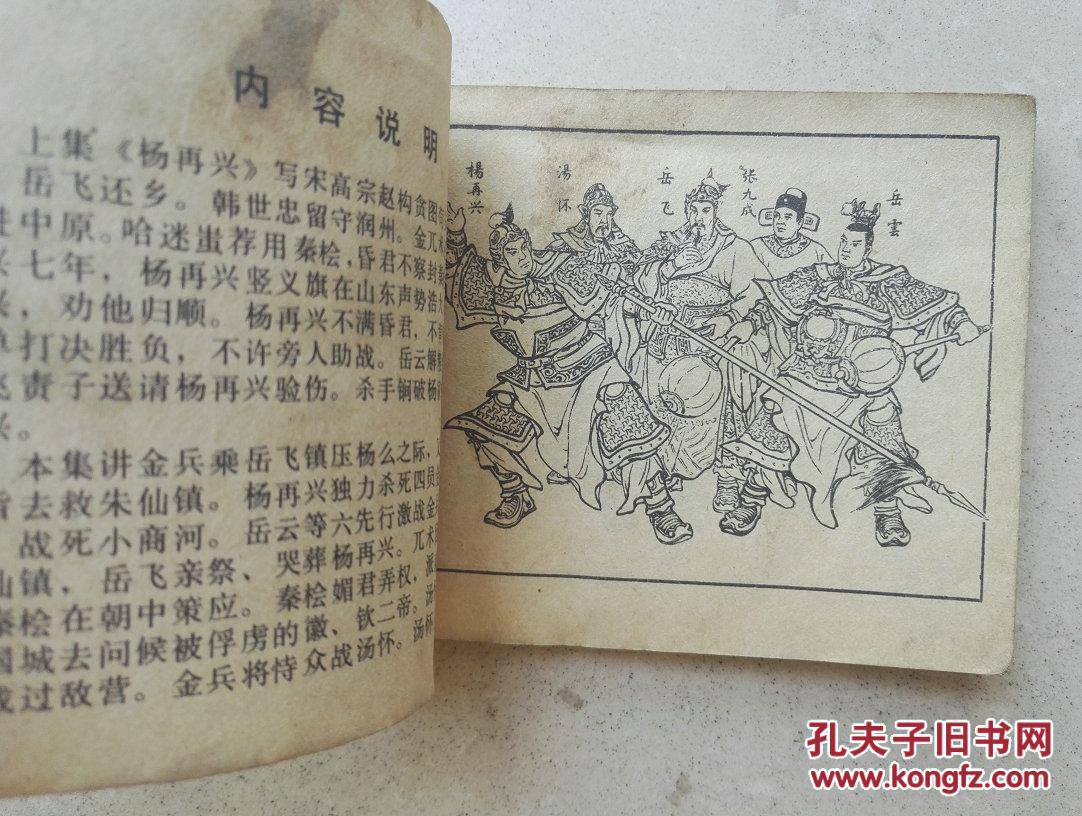 内容说明
上集《杨再兴》写宋高宗赵构贪图
岳飞还乡。韩世忠留守润州。金兀术
进中原。哈迷蚩荐用秦桧,昏君不察封
兴七年,杨再兴竖义旗在山东声势浩
,劝他归顺。杨再兴不满昏君,不
单打决胜负,不许旁人助战。岳云解
飞责子送请杨再兴验伤。杀手锏破杨
兴。
本集讲金兵乘岳飞镇压杨么之际,
旨去救朱仙镇。杨再兴独力杀死四员
战死小商河。岳云等六先行激战金
仙镇,岳飞亲祭、哭葬杨再兴。兀术
秦桧在朝中策应。秦桧媚君弄权,派
国城去问候被俘虏的徽、钦二帝。汤
成过敌营。金兵将恃众战汤怀。汤怀
楊再兴
湯怀
岳飞
张九成
岳雲
孔夫子旧书网
www.kongfz.com